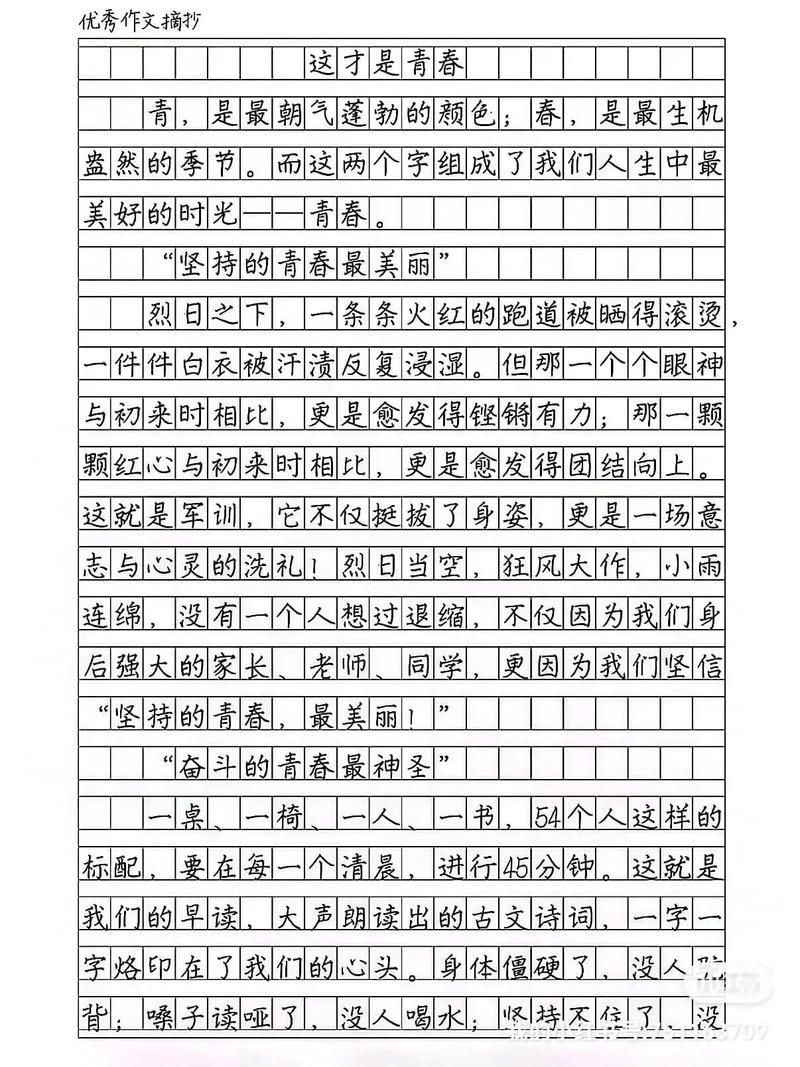 优秀作文摘抄
这才是青春
青，是最朝气蓬勃的颜色；春，是最生机
盎然的季节。而这两个字组成了我们人生中最
美好的时光——青春。
“坚持的青春最美丽”
烈日之下，一条条火红的跑道被晒得滚烫，
一件件白衣被汗渍反复浸湿。但那一个个眼神
与初来时相比，更是愈发得铿锵有力；那一颗
颗红心与初来时相比，更是愈发得团结向上。
这就是军训，它不仅挺拔了身姿，更是一场意
志与心灵的洗礼！烈日当空，狂风大作，小雨
连绵，没有一个人想过退缩，不仅因为我们身
后强大的家长、老师、同学，更因为我们坚信
“坚持的青春，最美丽！”
“奋斗的青春最神圣”
一桌、一椅、一人、一书，54个人这样的
标配，要在每一个清晨，进行45分钟。这就是
我们的早读，大声朗读出的古文诗词，一字一
字烙印在了我们的心头。身体僵硬了，没人
背；嗓子读哑了，没人喝水；坚持不住了，没
小红书